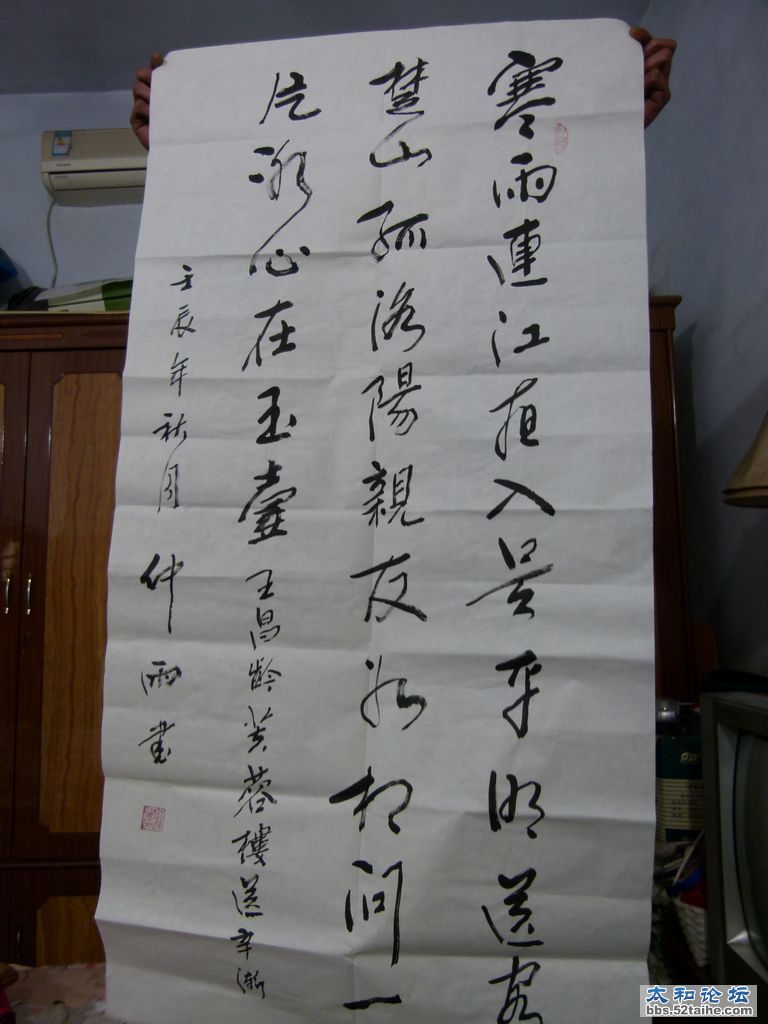 寒雨連江夜入吴平明送客
楚山孤洛陽親友如相问一
片冰心在玉壺 王昌齡芙蓉樓送辛漸
壬辰年秋月 仲雨書
太和论坛
bbs.52taihe.com